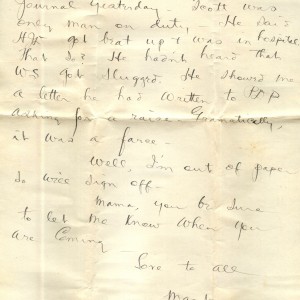 Journal Yesterday. Scott was
only man on duty. He said
got beat up & was in hospital.
That So? He hadn't heard that
W.S. got slugged. He showed me
a letter he had written to
asking for a raise. Gramatically,
it was a farce.
Well, I'm out of paper
So will sign off.
Mama, you be sure
to let me know when you
are coming
Love to all